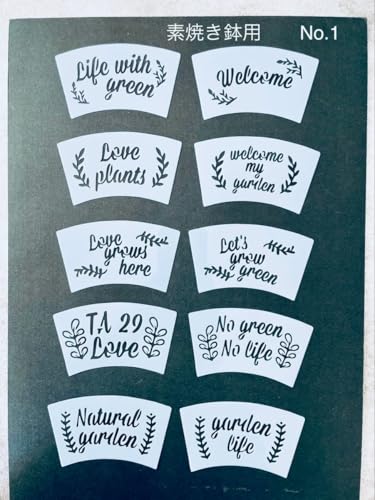 素焼き鉢用 No.1
Life with
green
Welcome
Love
plants
welcome
my
garden
Love
grows
here
Let's
grow
green
TA 29
Love
No green
No life
Natural
garden
garden
life